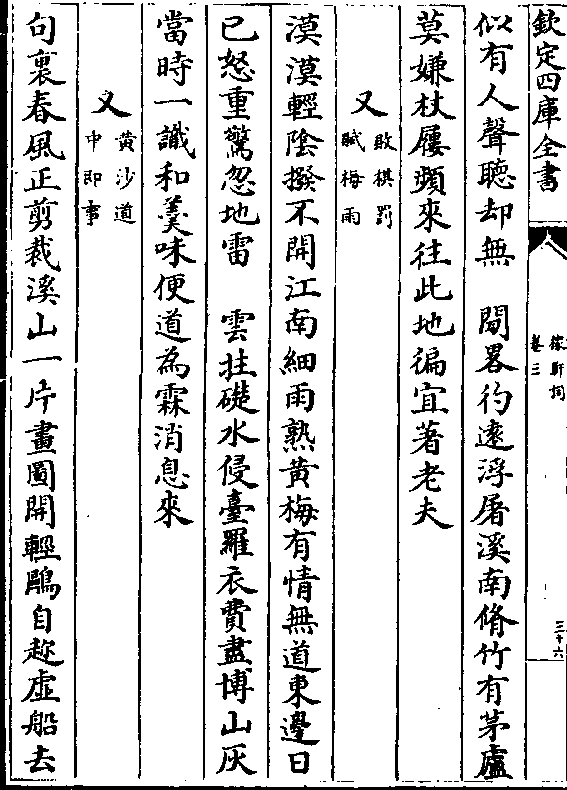 欽定四庫全書
稼軒詞
卷三
三十六
似有人聲聽却無　閒畧彴遠浮屠溪南脩竹有茅廬
莫嫌杖屨頻來往此地徧宜著老夫
又敗棋罰
賦梅雨
漠漠輕陰撥不開江南細雨熟黃梅有情無道東邊日
已怒重驚忽地雷　雲拄礎水侵臺羅衣費盡博山灰
當時一識和羹味便道為霖消息來
又黄沙道
中即事
句裏春風正剪裁溪山一片畫圖開輕鷗自趂虛船去